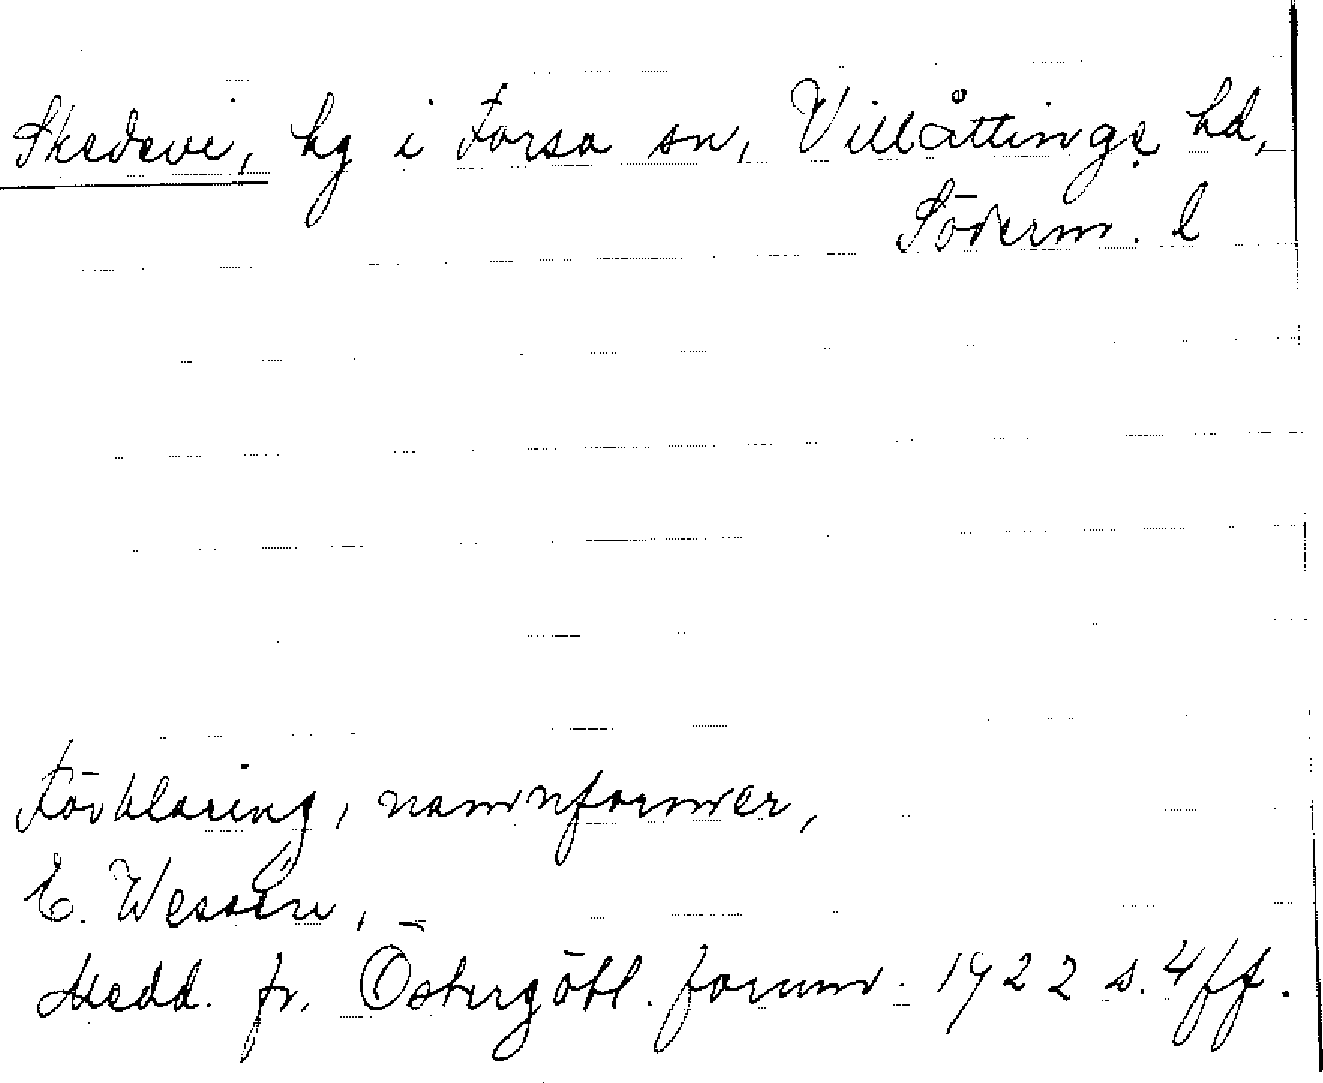 Skedevi, hg i Forsa sn, Villåttinge hd,
Söderm. l
Förklaring, namnformer,
E. Wessén,
Medd. fr. Östergötl. fornm. 1922 s. 4 ff.